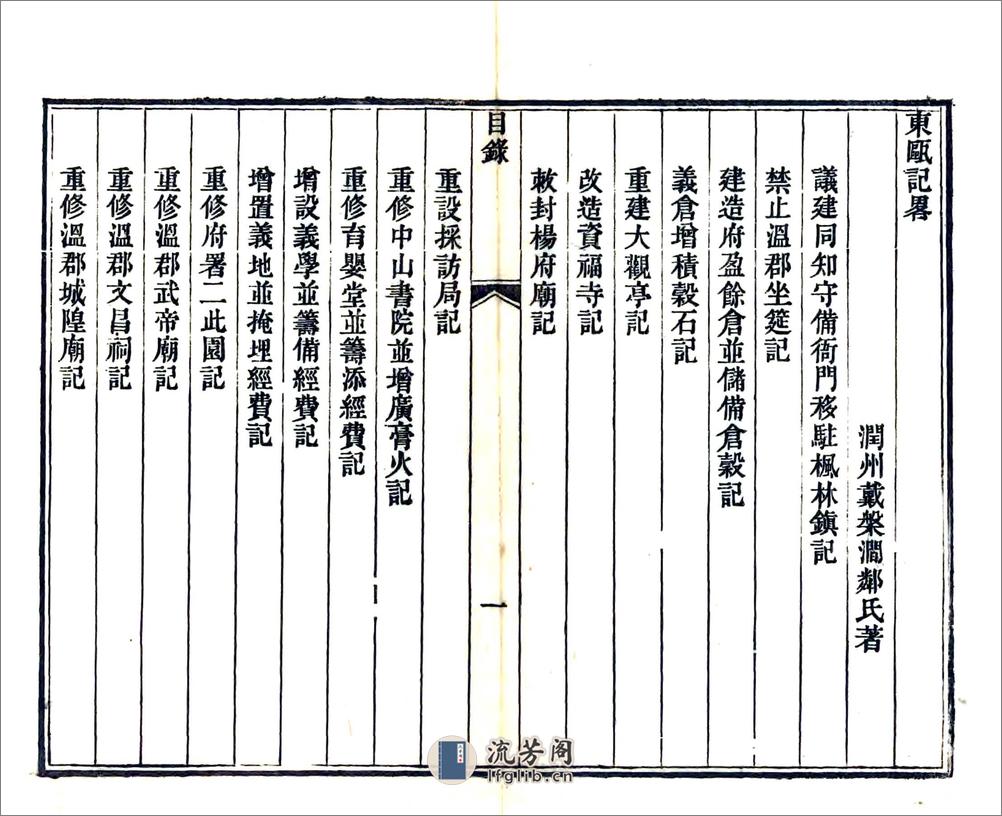 東甌記畧
潤州戴槃澗鄰氏著
議建同知守備衙門移駐楓林鎮記
禁止溫郡坐筵記
建造府盈餘倉並儲備倉穀記
義倉增積穀石記
重建大觀亭記
改造資福寺記
敕封楊府廟記
目錄
一
重設採訪局記
重修中山書院並增廣膏火記
重修育嬰堂並籌添經費記
增設義學並籌備經費記
增置義地並掩埋經費記
重修府署二此園記
重修溫郡武帝廟記
重修溫郡文昌祠記
重修溫郡城隍廟記
流芳阁
lfglib.cn